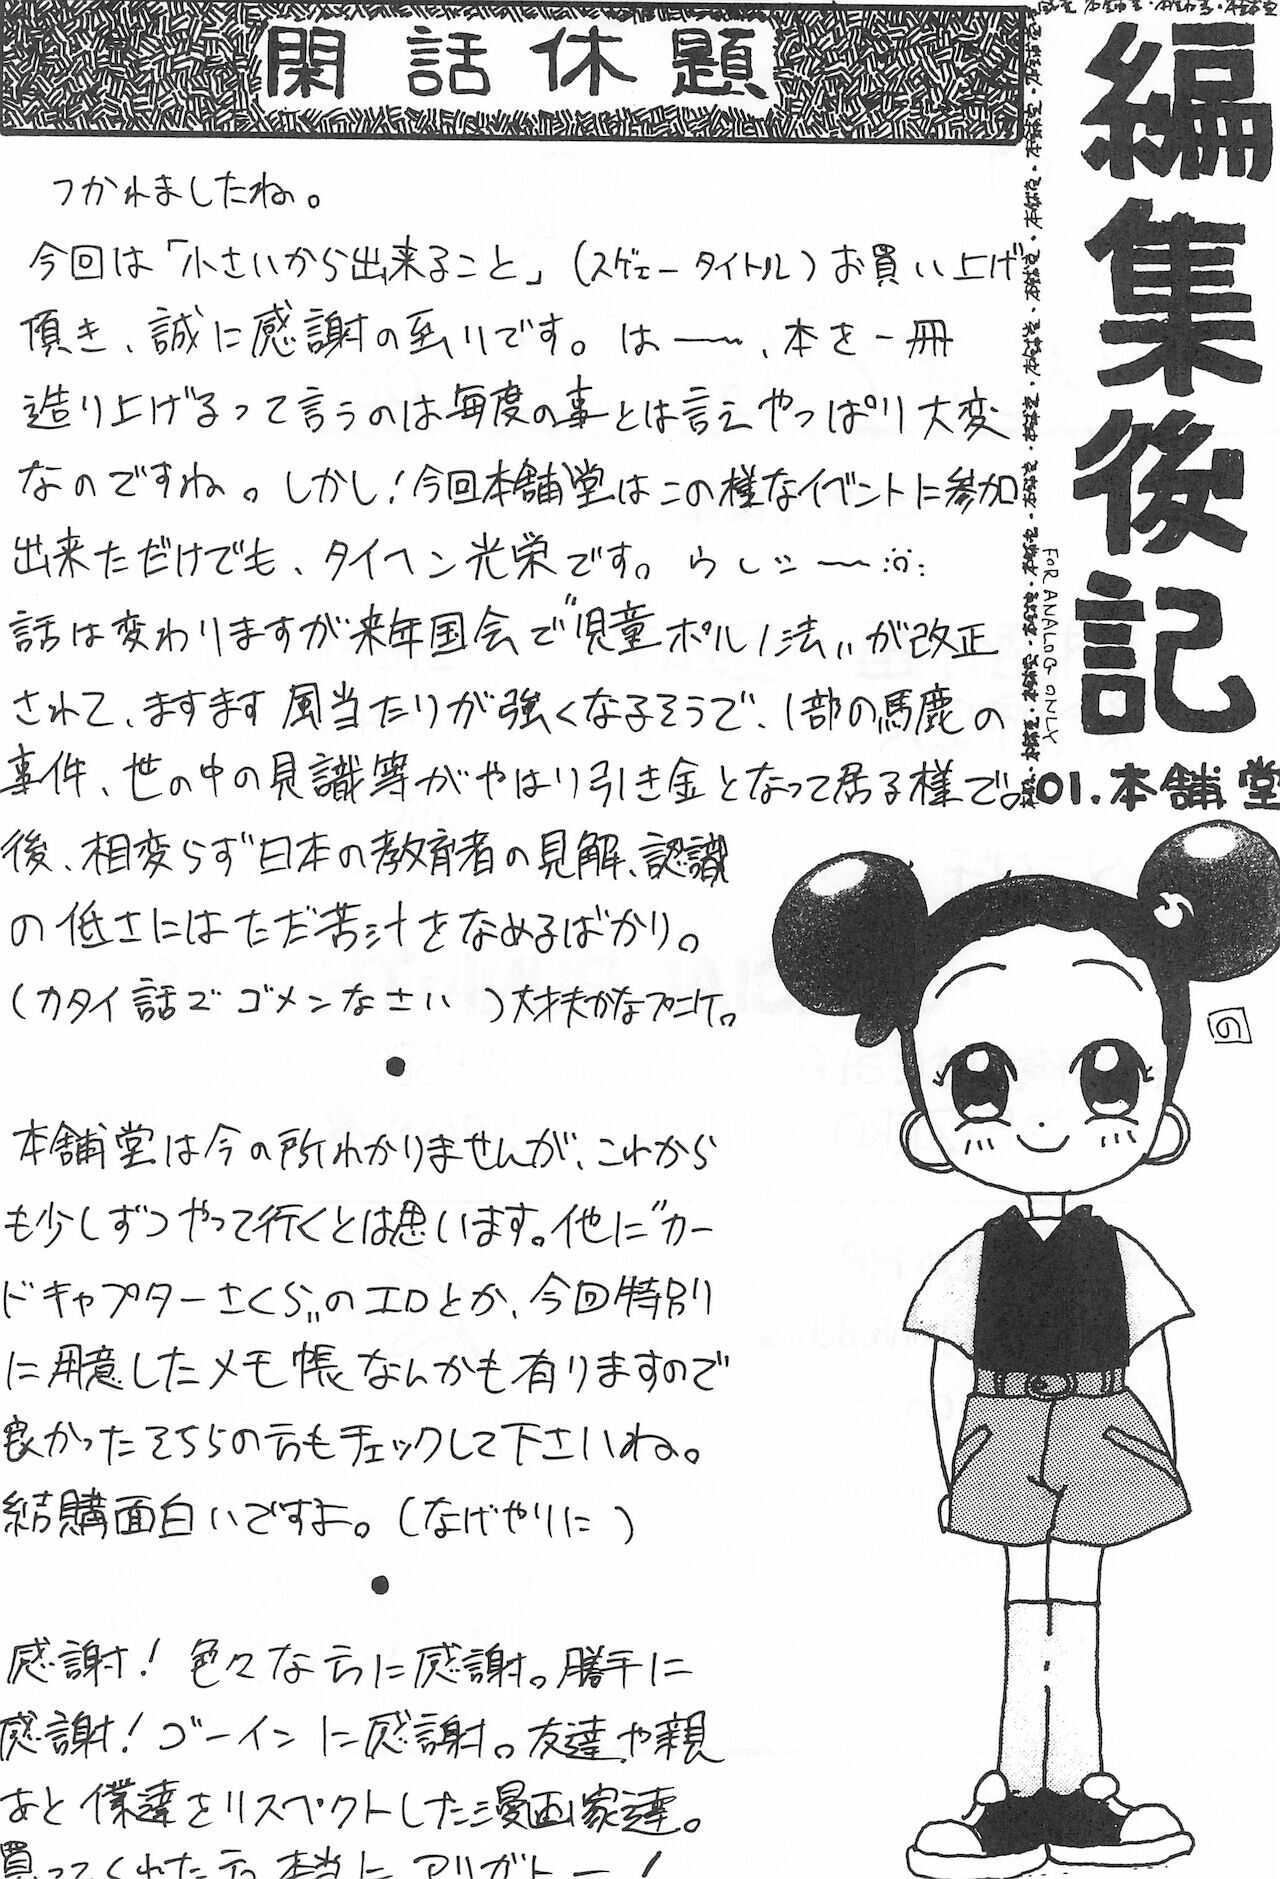 閑話休題
編集後記
FOR ANALOG ONLY
01.本舗堂
つかれましたね。
今回は「小さいから出来ること」(スゲェータイトル)お買い上げ
頂き、誠に感謝の至りです。はー〜、本を一冊
造り上げるって言うのは毎度の事とは言えやっぱり大変
なのですね。しかし!今回本舗堂はこの様なイベントに参加
出来ただけでも、タイヘン光栄です。らしニー〜
話は変わりますが来年国会で〝児童ポルノ法〟が改正
されて、ますます風当たりが強くなるそうで、1部の馬鹿の
事件、世の中の見識等がやはり引き金となって居る様で。
後、相変らず日本の教育者の見解、認識
の低さにはただ苦汁をなめるばかり。
(カタイ話でゴメンなさい)大丈夫かなアニケ。
●
本舗堂は今の所わかりませんが、これから
も少しずつやって行くとは思います。他に〝カー
ドキャプターさくら〟のエロとか、今回特別
に用意したメモ帳なんかも有りますので
良かったそちらの方もチェックして下さいね。
結購面白いですよ。(なげやりに)
●
感謝!色々な方に感謝。勝手に
感謝!ゴーインに感謝。友達や親
あと僕達をリスペクトした漫画家達。
買ってくれた方本当にアリガトー!
の